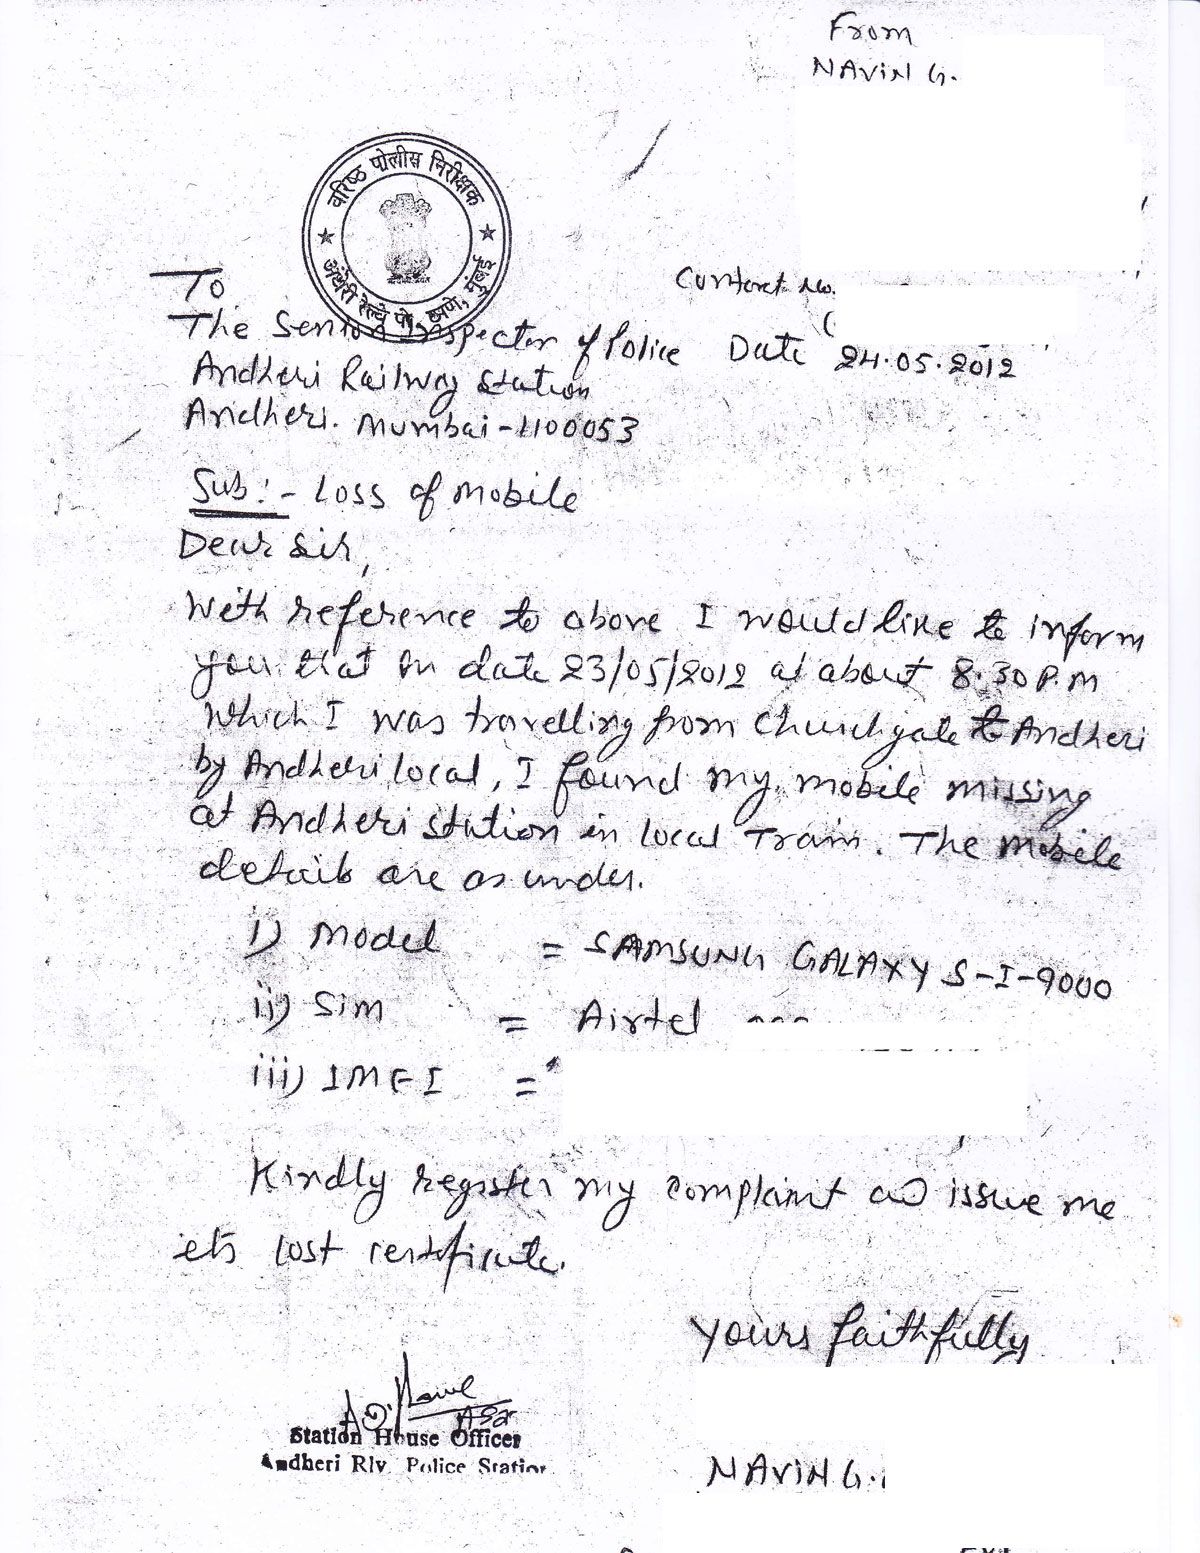 From
NAViN G.
वरिष्ठ पोलीस निरीक्षक
अंधेरी रेल्वे पो. ठाणे, मुंबई
To
Contact No.
The Senior Inspector of Police Date 24.05.2012
Andheri Railway Station
Andheri. Mumbai-400053
Sub:- Loss of Mobile
Dear Sir,
With reference to above I would like to inform
you that on date 23/05/2012 at about 8.30 P.M
Which I was travelling from Churchgate to Andheri
by Andheri local, I found my mobile missing
at Andheri station in local Train. The Mobile
details are as under.
i) Model = SAMSUNG GALAXY S-I-9000
ii) Sim = Airtel
iii) IMEI =
Kindly register my complaint and issue me
its lost certificate.
Yours faithfully
Station House Officer
Andheri Rly. Police Station
NAViN G.